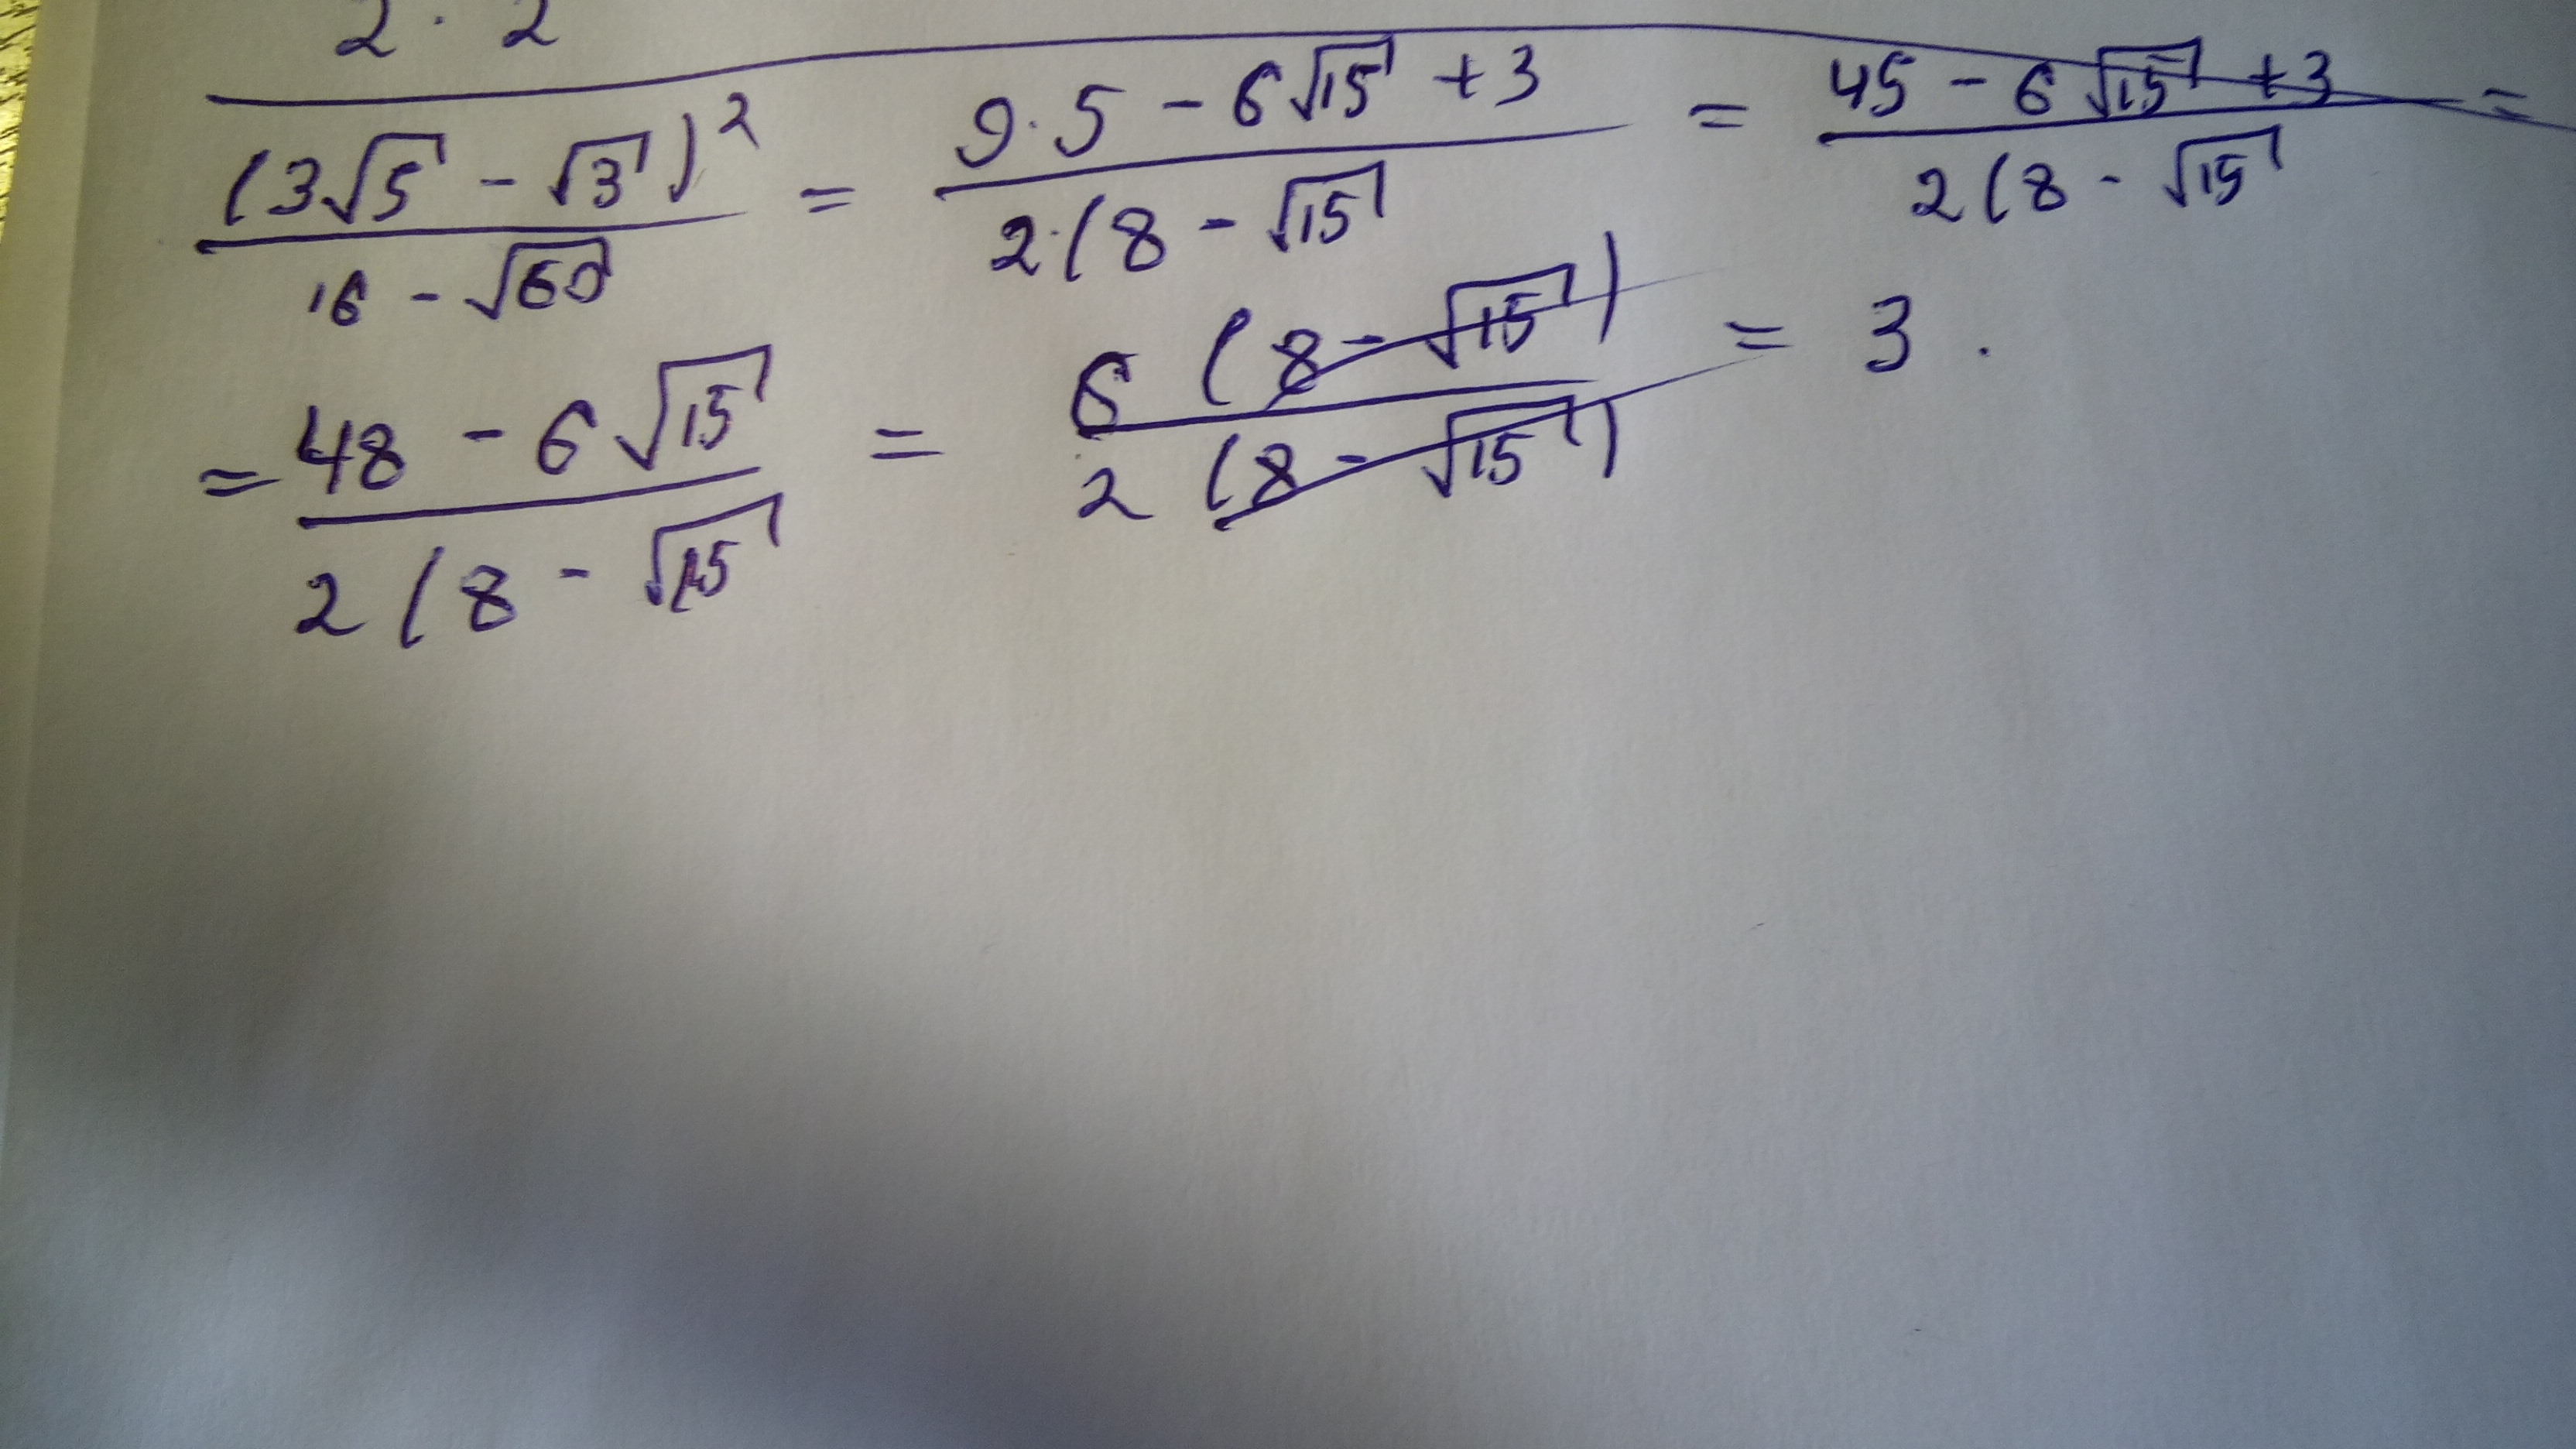 2 · 2
(3√5 - √3)² / 16 - √60 = 9·5 - 6√15 + 3 / 2·(8 - √15 = 45 - 6√15 + 3 / 2(8 - √15 =
= 48 - 6√15 / 2(8 - √15 = 6(8 - √15) / 2(8 - √15) = 3.